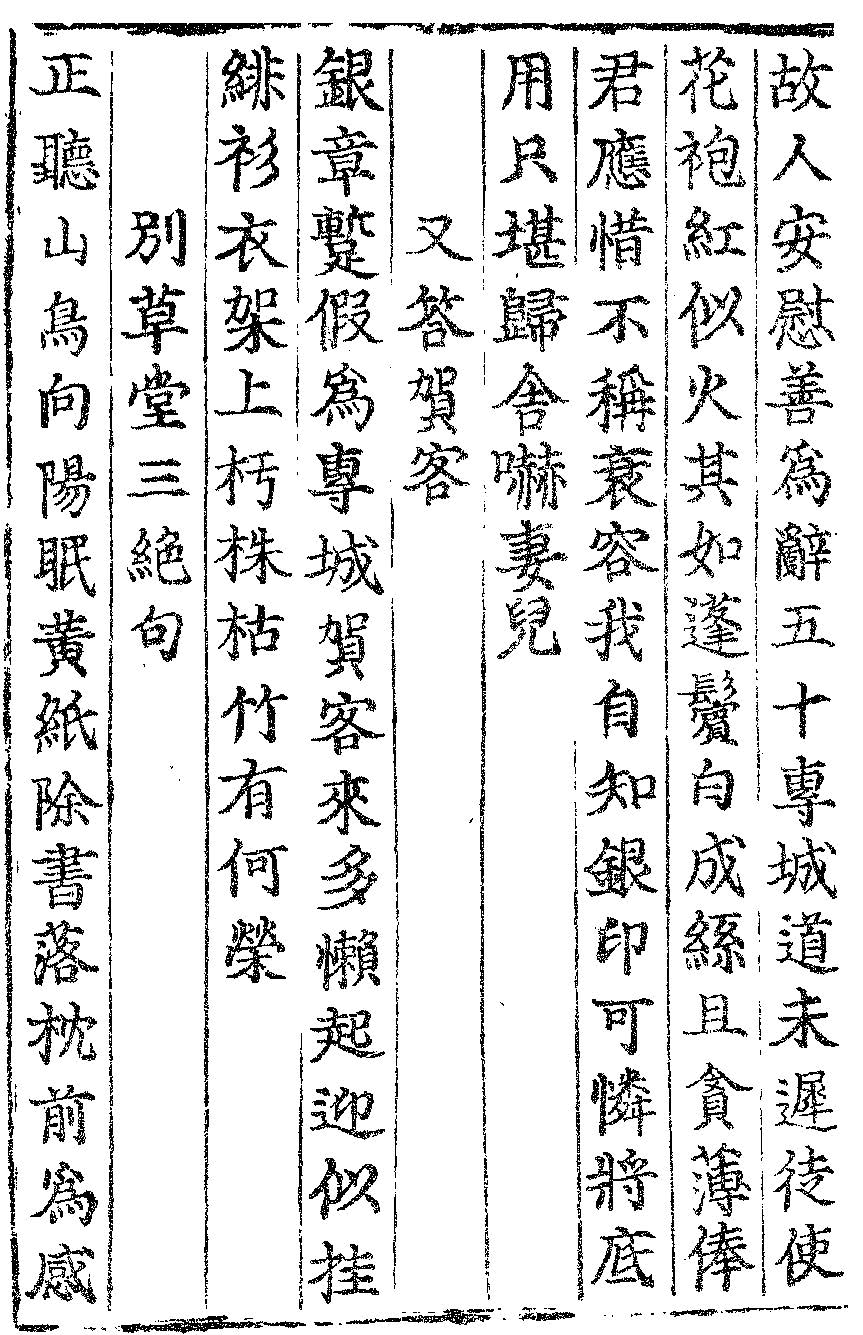 故人安慰善爲辭五十專城道未遲徒使
花袍紅似火其如蓬鬢白成絲且貪薄俸
君應惜不稱衰容我自知銀印可憐將底
用只堪歸舍嚇妻兒
又答賀客
銀章蹔假爲專城賀客來多懶起迎似挂
緋衫衣架上朽株枯竹有何榮
別草堂三絶句
正聽山鳥向陽眠黃紙除書落枕前爲感